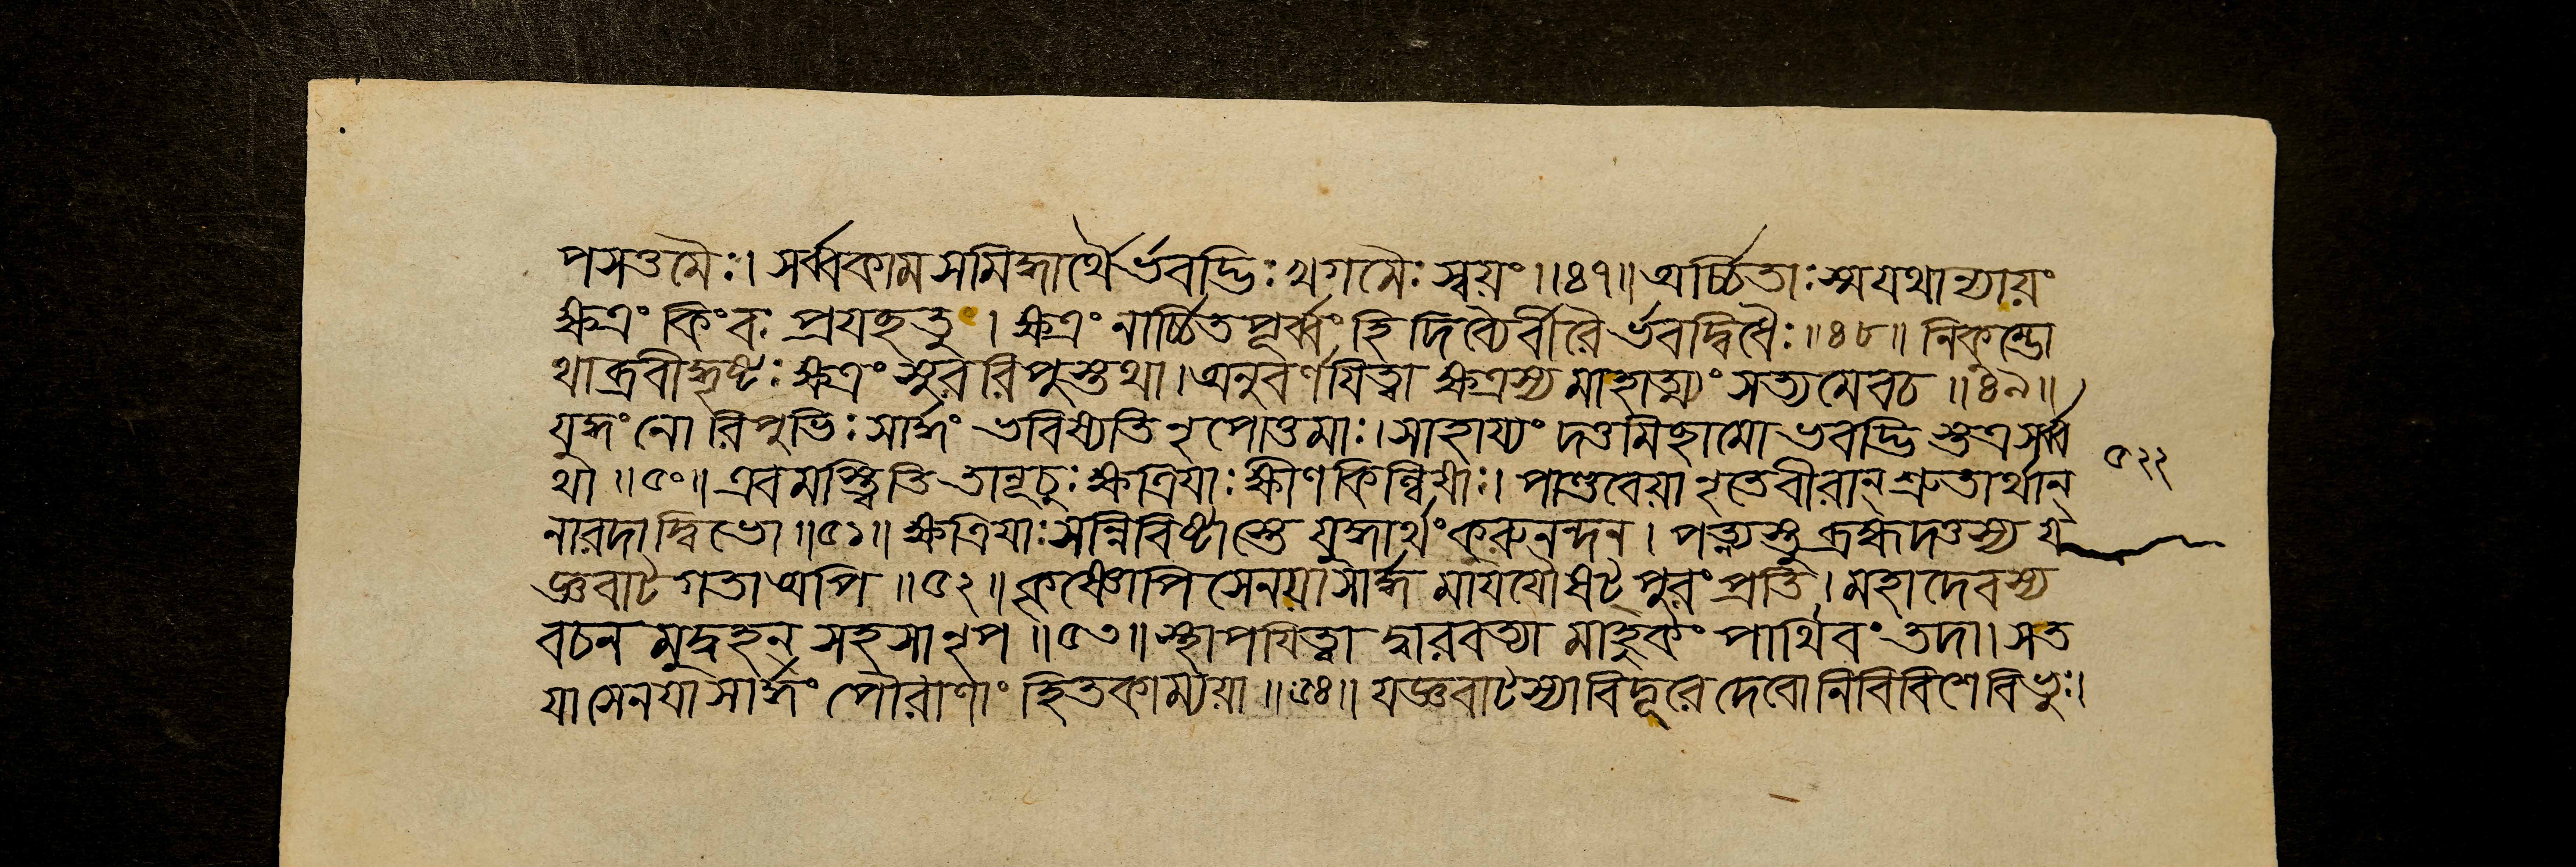 পসত্তমৈঃ। সর্ব্বকামসমিদ্ধার্থৈ র্ভবদ্ভিঃ খগমৈঃ স্বয়ং॥৪৭॥ অর্চ্চিতাঃ স্ম যথান্যায়ং
ক্ষত্রং কিং বঃ প্রযচ্ছতু। ক্ষত্রং নার্চ্চিতপূর্ব্বং হি দিব্যৈর্বীরৈ র্ভবদ্বিধৈঃ॥৪৮॥ নিকুম্ভো
থাব্রবীদ্ধৃষ্টঃ ক্ষত্রং সুররিপুস্তথা। অনুবর্ণযিত্বা ক্ষত্রস্য মাহাত্ম্যং সত্যমেবচ॥৪৯॥
যুদ্ধং নো রিপুভিঃ সার্দ্ধং ভবিষ্যতি নৃপোত্তমাঃ। সাহায্যং দত্তমিচ্ছামো ভবদ্ভি স্তত্র সর্ব্ব
থা॥৫০॥ এবমস্ত্বিতি তানূচুঃ ক্ষত্রিযাঃ ক্ষীণকিল্বিষাঃ। পাণ্ডবেয়ানৃতে বীরান্ শ্রুতার্থান্
৫২২
নারদাদ্বিভো॥৫১॥ ক্ষত্রিযাঃ সন্নিবিষ্টাস্তে যুদ্ধার্থং কুরুনন্দন। পত্ন্যস্তু ব্রহ্মদত্তস্য য
জ্ঞবাটং গতা অপি॥৫২॥ কৃষ্ণোপি সেনয়া সার্দ্ধ মাযযৌ ষট্পুরং প্রতি। মহাদেবস্য
বচন মুদ্বহন্ সহসা নৃপ॥৫৩॥ স্থাপযিত্বা দ্বারবত্যা মাহুকং পার্থিবং তদা। সত
যা সেনযা সার্দ্ধং পৌরাণাং হিতকাম্যয়া॥৫৪॥ যজ্ঞবাটস্যাবিদূরে দেবো নিবিবিশে বিভুঃ।